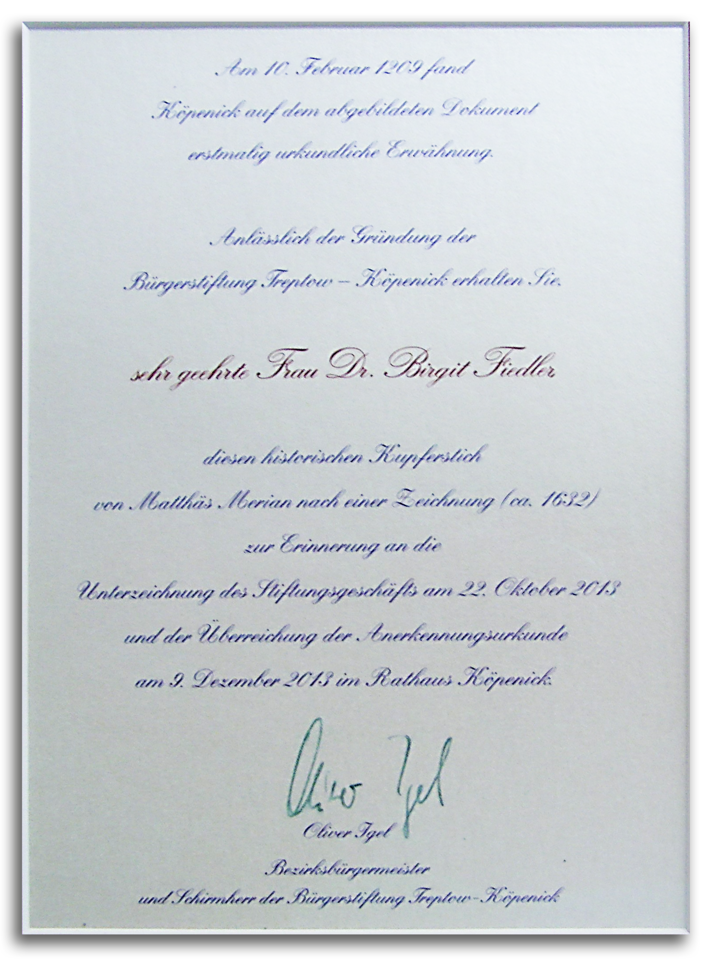 Am 10. Februar 1209 fand
Köpenick auf dem abgebildeten Dokument
erstmalig urkundliche Erwähnung.
Anlässlich der Gründung der
Bürgerstiftung Treptow – Köpenick erhalten Sie,
sehr geehrte Frau Dr. Birgit Fiedler,
diesen historischen Kupferstich
von Matthäs Merian nach einer Zeichnung (ca. 1632)
zur Erinnerung an die
Unterzeichnung des Stiftungsgeschäfts am 22. Oktober 2013
und der Überreichung der Anerkennungsurkunde
am 9. Dezember 2013 im Rathaus Köpenick.
Oliver Igel
Oliver Igel
Bezirksbürgermeister
und Schirmherr der Bürgerstiftung Treptow-Köpenick